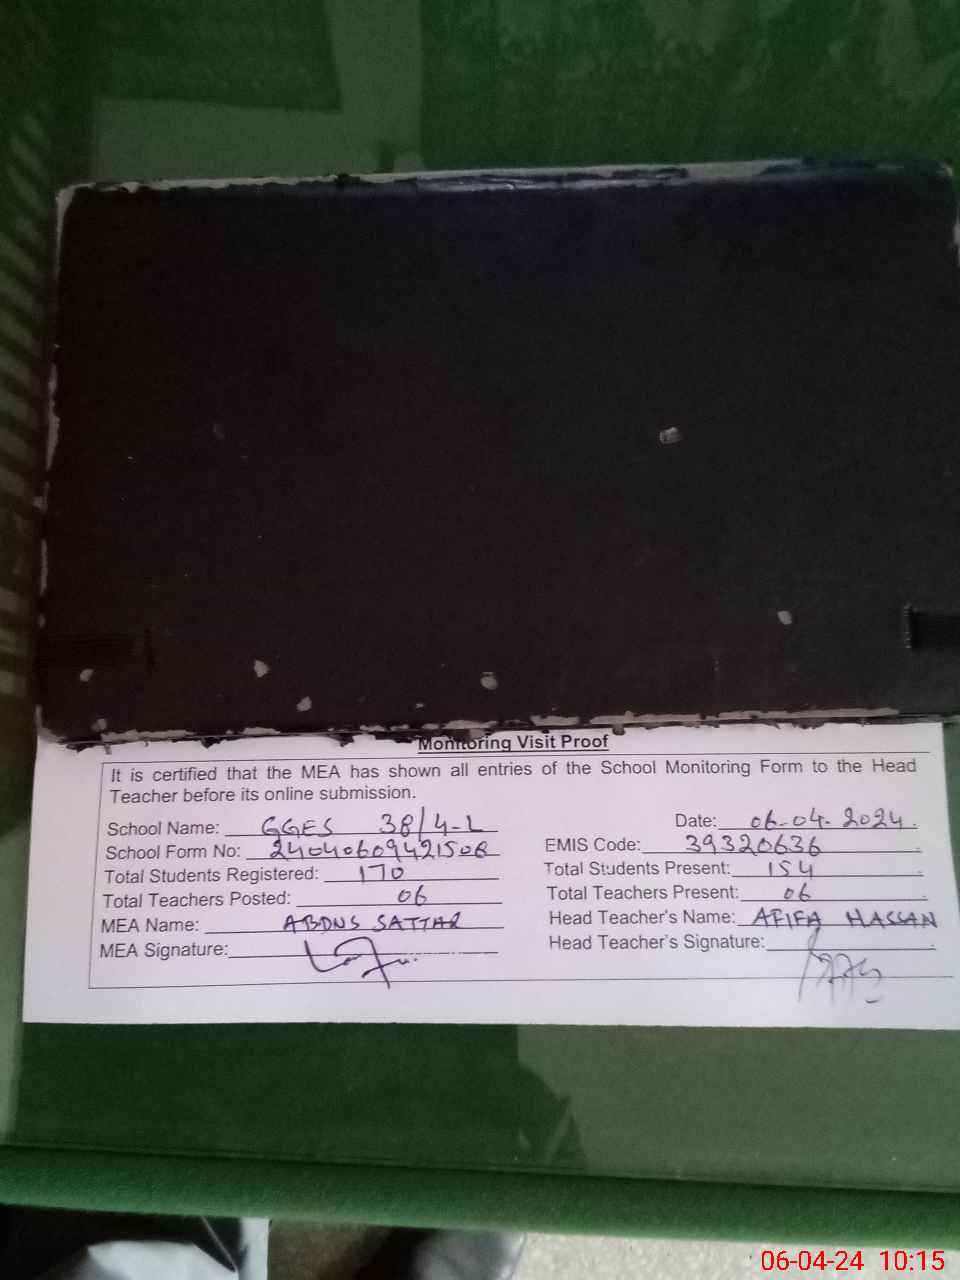 Monitoring Visit Proof
It is certified that the MEA has shown all entries of the School Monitoring Form to the Head
Teacher before its online submission.
School Name: GGES 38/4-L Date: 06-04-2024
School Form No: 24040609421508 EMIS Code: 39320636
Total Students Registered: 170 Total Students Present: 154
Total Teachers Posted: 06 Total Teachers Present: 06
MEA Name: ABDUS SATTAR Head Teacher's Name: AFIFA HASSAN
MEA Signature: Head Teacher's Signature:
06-04-24 10:15